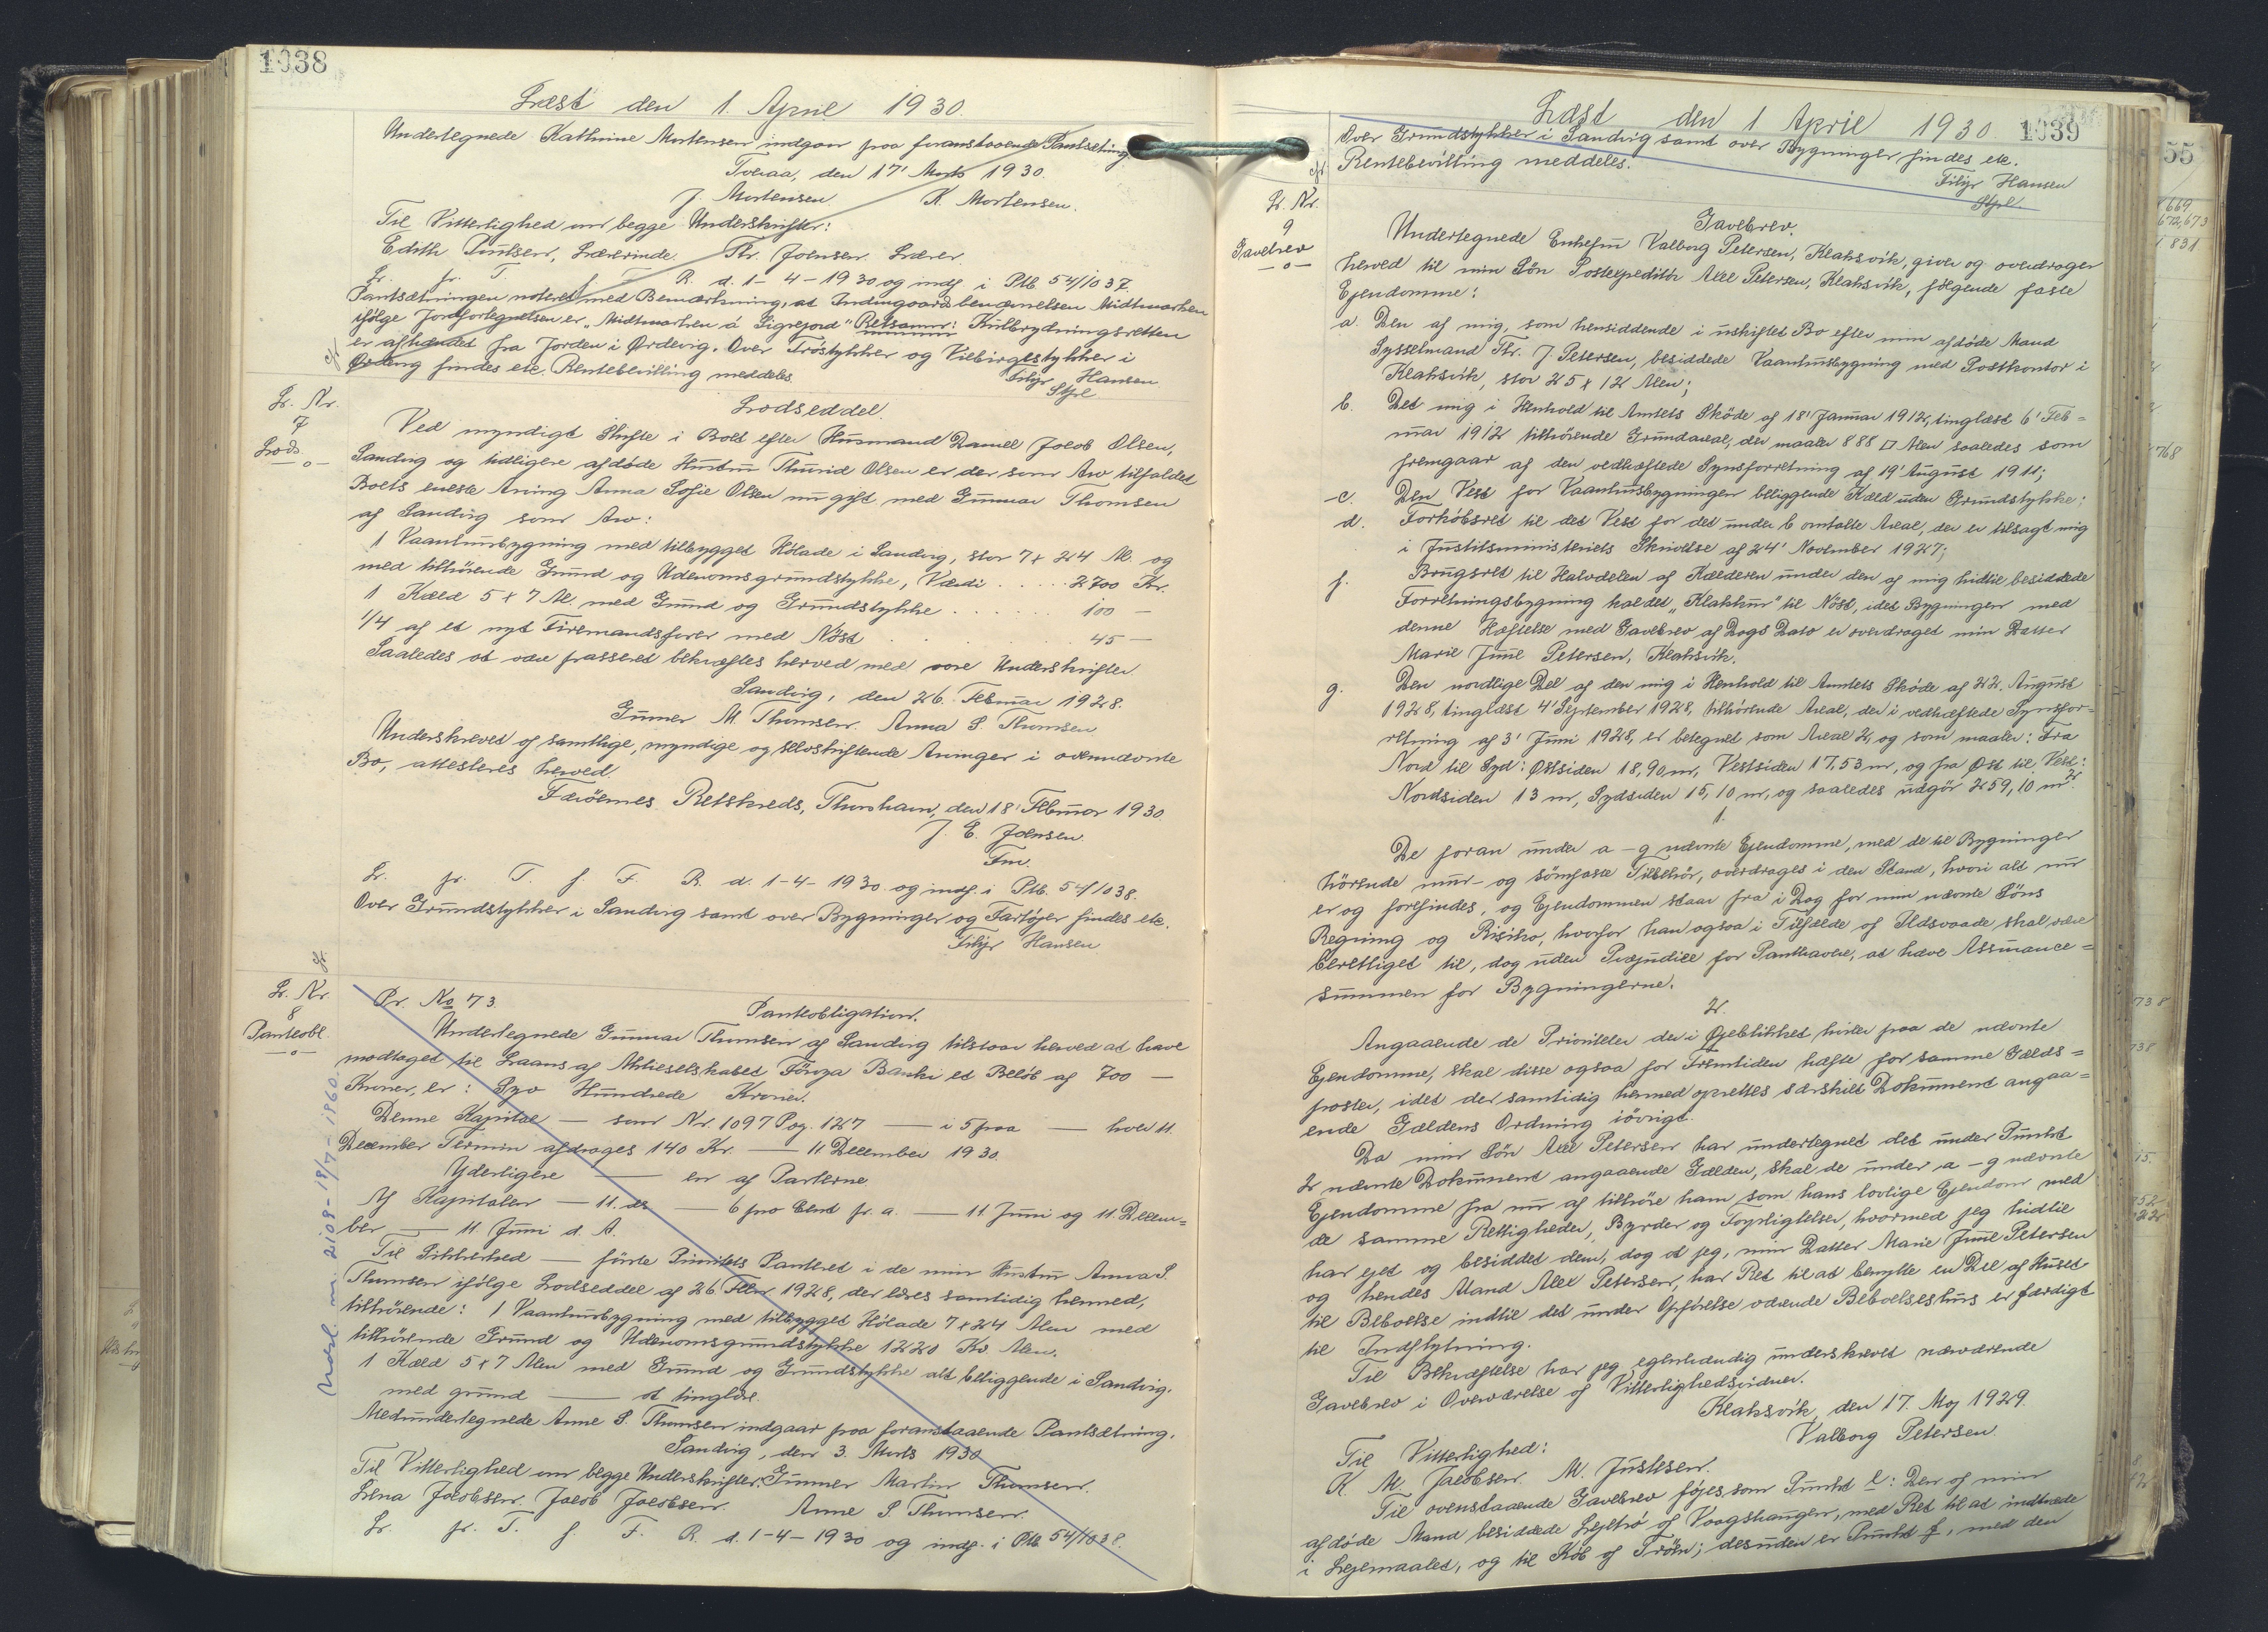 1038
Læst den 1 April 1930.
Undertegnede Kathrine Mortensen indgaar paa foranstaaende Pantsætning
Tveraa, den 17' Marts 1930.
J. Mortensen. K. Mortensen.
Til Vitterlighed om begge Underskrifter:
Edith Poulsen, Lærerinde. Thr. Joensen. Lærer.
L. fr. T. f. F. R. d. 1-4-1930 og indf. i Ptb. 54/1037.
Pantsætningen noteret med Bemærkning, at Indmgaardsbenævnelsen Midtmarken
ifølge Jordfortegnelsen er "Midtmarken á Sigrejord" Retsanm: Kulbrydningsretten
er afhændet fra Jorden i Ørdevig. Over Trøstykker og Viebirgestykker i
Ørdevig findes etc. Rentebevilling meddeles.
Filip Hansen
Stful
L. Nr.
7
Lods.
—o—
Lodseddel.
Ved myndigt Skifte i Boet efter Husmand Daniel Jacob Olsen,
Sandvig og tidligere afdøde Hustru Thurid Olsen er der som Arv tilfaldet
Boets eneste Arving Anna Sofie Olsen nu gift med Gunnar Thomsen
af Sandvig som Arv:
1 Vaaningsbygning med tilbygget Hølade i Sandvig, stor 7 x 24 Al. og
med tilhørende Grund og Udenomsgrundstykke, Værdi . . . . . 2700 Kr.
1 Kæld 5 x 7 Al. med Grund og Grundstykke . . . . . . 100 —
1/4 af et nyt Firemandsfarer med Nøst . . . . . 45 —
Saaledes at være passeret bekræftes herved med vore Underskrifter.
Sandvig, den 26. Februar 1928.
Gunner M. Thomsen. Anna S. Thomsen
Underskrevet af samtlige, myndige og selvskiftende Arvinger i ovennævnte
Bo, attesteres herved.
Færøernes Retskreds, Thorshavn, den 18' Februar 1930.
J. E. Joensen.
Fm.
L. fr. T. f. F. R. d. 1-4-1930 og indf. i Ptb. 54/1038.
Over Grundstykker i Sandvig samt over Bygninger og Fartøjer findes etc.
Filip Hansen
L. Nr.
8
Panteobl.
—o—
Pr. No. 73.
Panteobligation.
Undertegnede Gunnar Thomsen af Sandvig tilstaar herved at have
modtaget til Laans af Aktieselskabet Föroya Banki et Beløb af 700 —
Kroner, er: Syv Hundrede Kroner.
Denne Kapital — som Nr. 1097 Pag. 127 — i 5 paa — hver 11
December Termin afdrages 140 Kr. — 11 December 1930.
Yderligere — en af Parterne
Af Kapitalen — 11. ds — 6 pro Cent p. a. — 11 Juni og 11. Decem=
ber — 11 Juni d. A.
Til Sikkerhed — første Prioritets Panteret i de min Hustru Anna S.
Thomsen ifølge Lodseddel af 26. Febr. 1928, der læses samtidig hermed,
tilhørende: 1 Vaaningsbygning med tilbygget Hølade 7 x 24 Alen med
tilhørende Grund og Udenomsgrundstykke 1220 Kv. Alen.
1 Kæld 5 x 7 Alen med Grund og Grundstykke alt beliggende i Sandvig.
med grund — at tinglæse.
Medundertegnede Anne S. Thomsen indgaar paa foranstaaende Pantsætning.
Sandvig, den 3. Marts 1930
Til Vitterlighed om begge Underskrifter: Gunner Martin Thomsen.
Lena Jacobsen. Jacob Jacobsen. Anne S. Thomsen.
L. fr. T. f. F. R. d. 1-4-1930 og indf. i Ptb. 54/1038.
2108 - 18/7 - 1960.
Læst den 1 April 1930
1039
Over Grundstykker i Sandvig samt over Bygninger findes etc.
Rentebevilling meddeles.
Filip Hansen
L. Nr.
9
Gavebrev
—o—
Gavebrev.
Undertegnede Enkefru Valborg Petersen, Klaksvik, giver og overdrager
herved til min Søn Postexpeditör Axel Petersen, Klaksvik, følgende faste
Ejendomme:
a. Den af mig, som hensiddende i uskiftet Bo efter min afdøde Mand
Sysselmand Thr. J. Petersen, besiddede Vaaningsbygning med Postkontor i
Klaksvik, stor 25 x 12 Alen;
b. Det mig i Henhold til Amtets Skøde af 18' Januar 1912, tinglæst 6' Feb=
ruar 1912 tilhørende Grundareal, der maaler 888 □ Alen saaledes som
fremgaar af den vedhæftede Synsforretning af 19' August 1911;
c. Den Vest for Vaaningsbygningen beliggende Kæld uden Grundstykke;
d. Forkøbsret til det Vest for det under b omtalte Areal, der er tilsagt mig
i Justitsministeriets Skrivelse af 24' November 1927;
f. Brugsret til Halvdelen af Kælderen under den af mig hidtil besiddede
Forretningsbygning kaldet "Klakkur" til Nøst, idet Bygningen med
denne Hæftelse med Gavebrev af Dags Dato er overdraget min Datter
Marie Juul Petersen, Klaksvik.
g. Den nordlige Del af den mig i Henhold til Amtets Skøde af 22. August
1928, tinglæst 4' September 1928, tilhørende Areal, der i vedhæftede Synsfor=
retning af 3' Juni 1928, er betegnet som Areal 2, og som maaler: Fra
Nord til Syd: Østsiden 18,90 m, Vestsiden 17,53 m, og fra Øst til Vest:
Nordsiden 13 m, Sydsiden 15,10 m, og saaledes udgør 259,10 m2.
1.
De foran under a–g nævnte Ejendomme, med de til Bygninger
hørende mur- og sømfaste Tilbehør, overdrages i den Stand, hvori alt nu
er og forefindes, og Ejendommen staar fra i Dag for min nævnte Søns
Regning og Risiko, hvorfor han ogsaa i Tilfælde af Ildsvaade skal være
berettiget til, dog uden Præjudice for Panthavere, at hæve Assurance=
summen for Bygningerne.
2.
Angaaende de Prioriteter der i Øjeblikket hviler paa de nævnte
Ejendomme, skal disse ogsaa for Fremtiden hæfte for samme Gælds=
poster, idet der samtidig hermed oprettes særskilt Dokument angaa=
ende Gældens Ordning iøvrigt.
Da min Søn Axel Petersen har undertegnet det under Punkt
2 nævnte Dokument angaaende Gælden, skal de under a–g nævnte
Ejendomme fra nu af tilhøre ham som hans lovlige Ejendom med
de samme Rettigheder, Byrder og Forpligtelser, hvormed jeg hidtil
har ejet og besiddet dem, dog at jeg, min Datter Marie Juul Petersen
og hendes Mand Alex Petersen, har Ret til at benytte en Del af Huset
til Beboelse indtil det under Opførelse værende Beboelseshus er færdigt
til Indflytning.
Til Bekræftelse har jeg egenhændig underskrevet nærværende
Gavebrev i Overværelse af Vitterlighedsvidner.
Klaksvik, den 17. Maj 1929.
Valborg Petersen.
Til Vitterlighed:
K. M. Jacobsen. M. Justesen.
Til ovenstaaende Gavebrev føjes som Punkt e: Den af min
afdøde Mand besiddede Lejetrø af Vaagshaugen, med Ret til at indtræde
i Lejemaalet, og til Køb af Trøen; desuden er Punkt f, med den
55
669
672,673
831
768
738
738